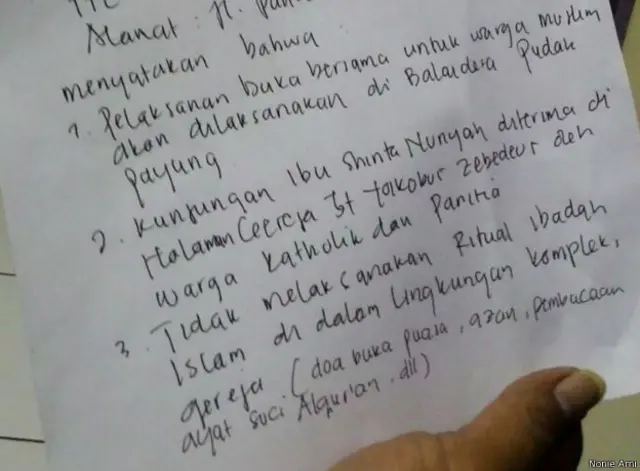 TTL
Alamat : Jl.
menyatakan bahwa
1. Pelaksanan buka bersama untuk warga muslim
akan dilaksanakan di Balaidesa Pudak
payung
2. Kunjungan Ibu Shinta Nuriyah diterima di
Halaman Gereja St Yakobur Zebedeur oleh
warga Katholik dan Panitia
3. Tidak melaksanakan Ritual ibadah
Islam di dalam lingkungan komplek,
gereja (doa buka puasa, azan, pembacaan
ayat suci Alqur'an. dll)
Nonie Arni